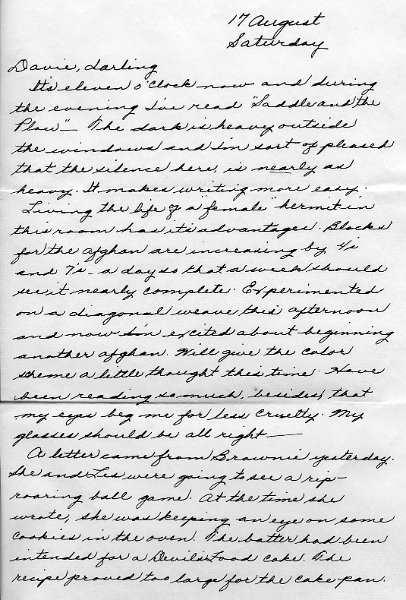 17 August
Saturday
Davie, darling
It's eleven o'clock now and during
the evening I've read "Saddle and the
Plow"— The dark is heavy outside
the windows and I'm sort of pleased
that the silence here, is nearly as
heavy. It makes writing more easy.
Living the life of a female "hermit in
this room has it's advantages. Blocks
for the afghan are increasing by 4's
and 7's - a day so that a week should
see it nearly complete. Experimented
on a diagonal weave this afternoon
and now I'm excited about beginning
another afghan. Will give the color
sheme a little thought this time. Have
been reading so much, besides, that
my eyes beg me for less cruelty. My
glasses should be all right—
A letter came from Brownie yesterday.
She and Les were going to see a rip-
roaring ball game. At the time she
wrote, she was keeping an eye on some
cookies in the oven. The batter had been
intended for a Devil's Food cake. The
recipe proved too large for the cake pan.